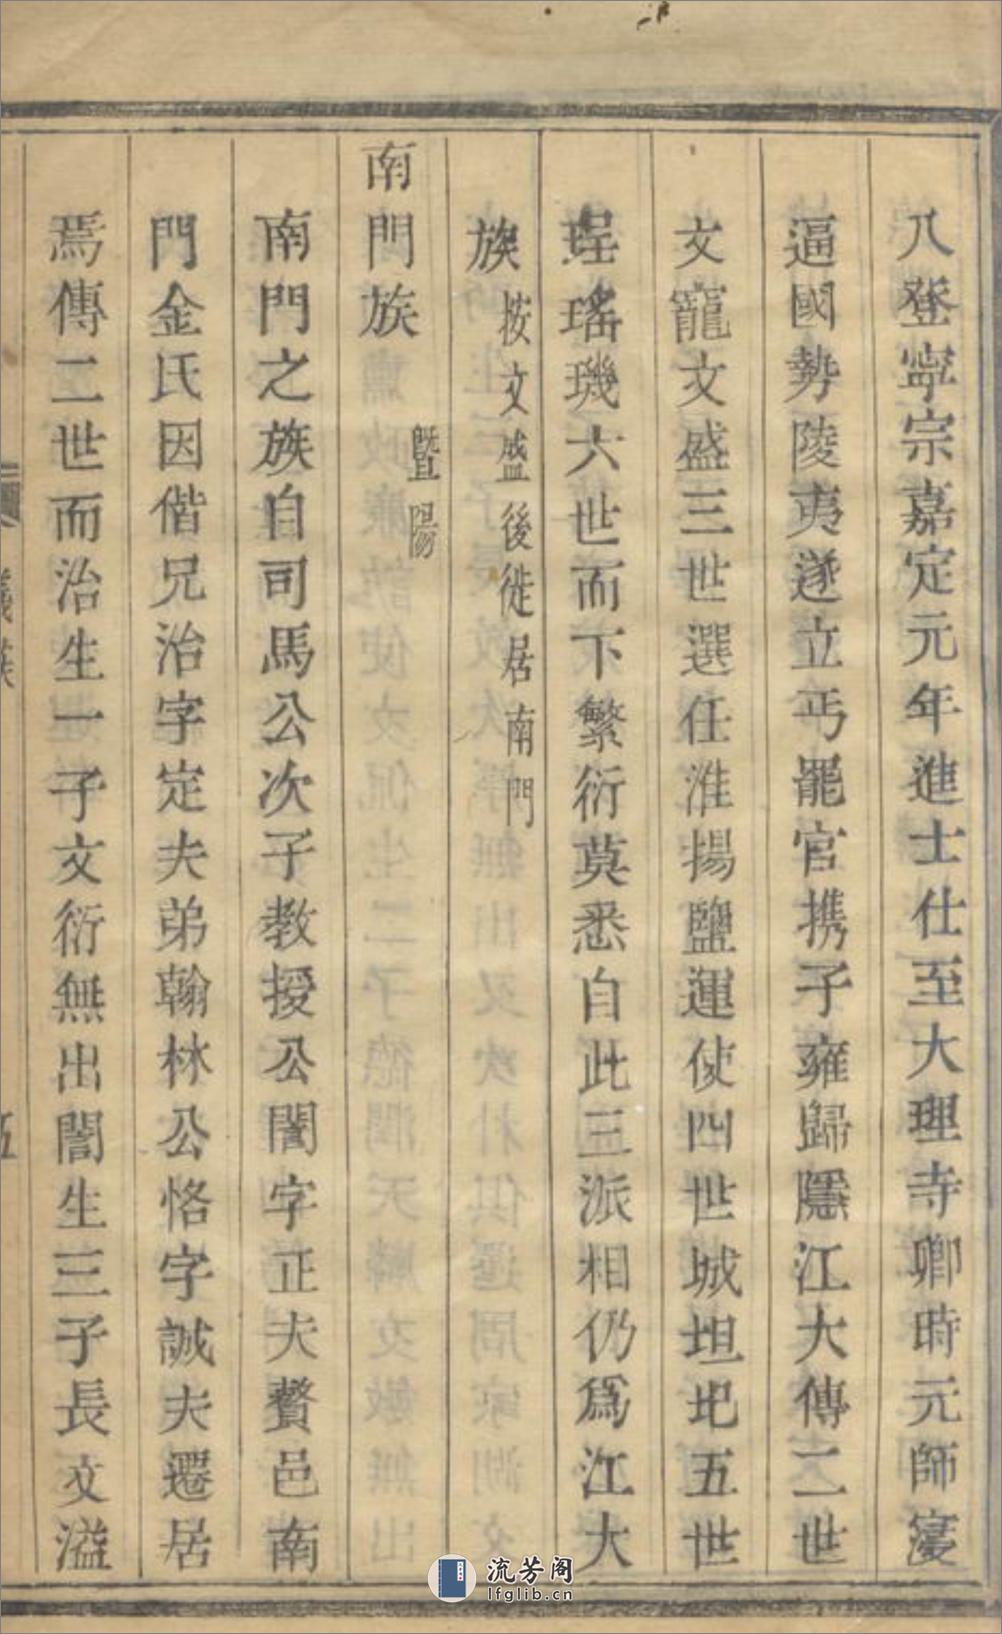 八登寧宗嘉定元年進士仕至大理寺卿時元師寖
逼國勢陵夷遂立丐罷官携子雍歸隱江大傳二世
文寵文盛三世選任淮揚鹽運使四世城坦圯五世
珵瑤璣六世而下繁衍莫悉自此三派相仍爲江大
族 按文盛後徙居南門
南門族 暨陽
南門之族自司馬公次子教授公誾字正夫贅邑南
門金氏因偕兄治字定夫弟翰林公恪字誠夫遷居
焉傳二世而治生一子文衍無出誾生三子長文溢
族
五
流芳阁
lfglib.cn